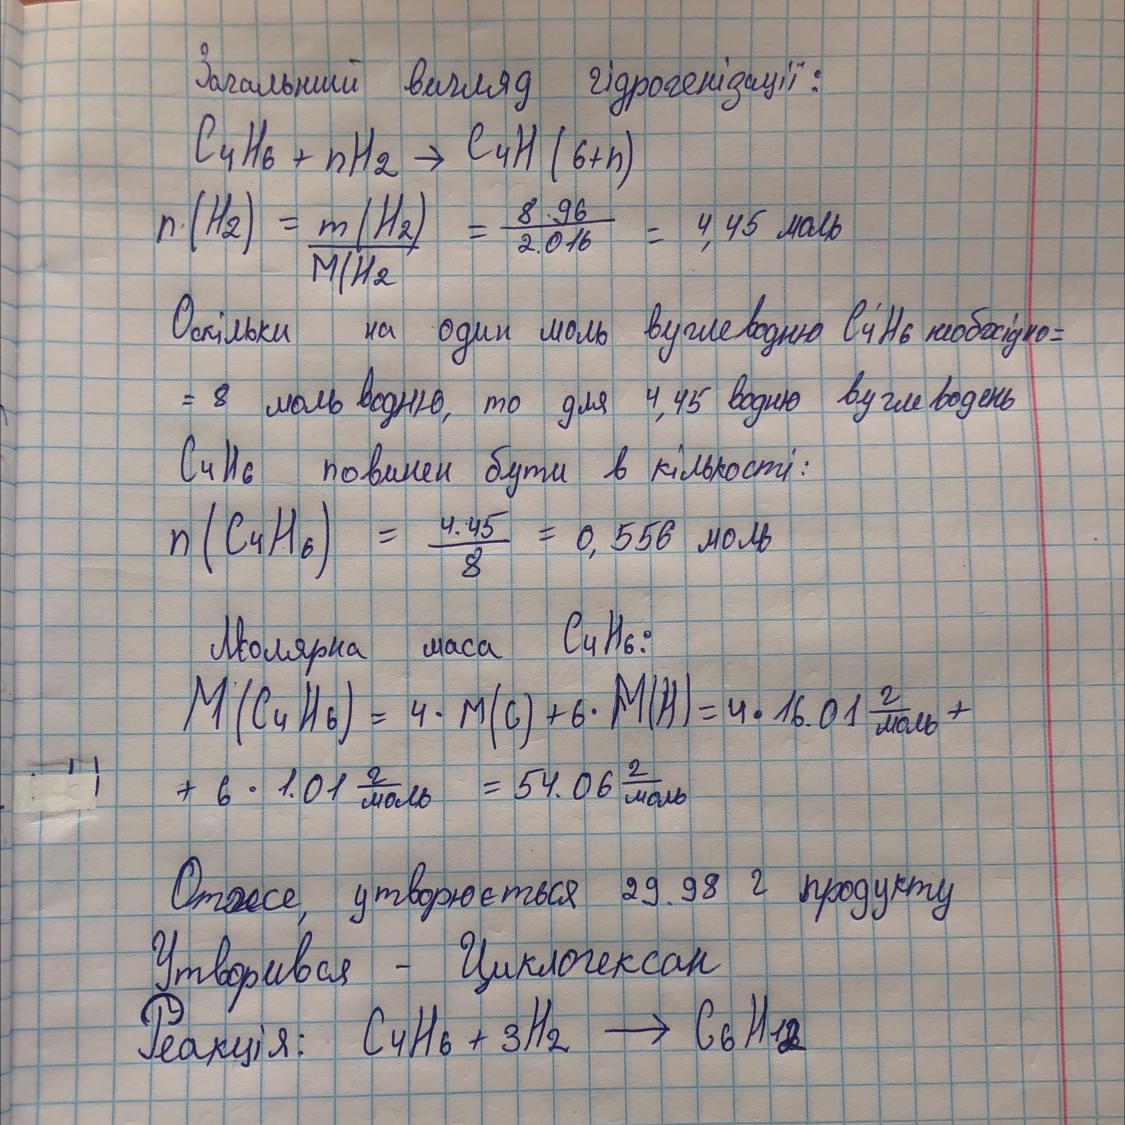 Загальний вигляд гідрогенізації:
C4H6 + nH2 → C4H (6+n)
n·(H2) = m(H2) / M(H2 = 8.96 / 2.016 = 4,45 моль
Оскільки на один моль вуглеводню C4H6 необхідно=
= 8 моль водню, то для 4,45 водню вуглеводень
C4H6 повинен бути в кількості:
n(C4H6) = 4.45 / 8 = 0,556 моль
Молярна маса C4H6:
M(C4H6) = 4 · M(C) + 6 · M(H) = 4 · 16.01 г/моль +
+ 6 · 1.01 г/моль = 54.06 г/моль
Отже, утворюється 29.98 г продукту
Утворився - Циклогексан
Реакція: C4H6 + 3H2 → C6H12